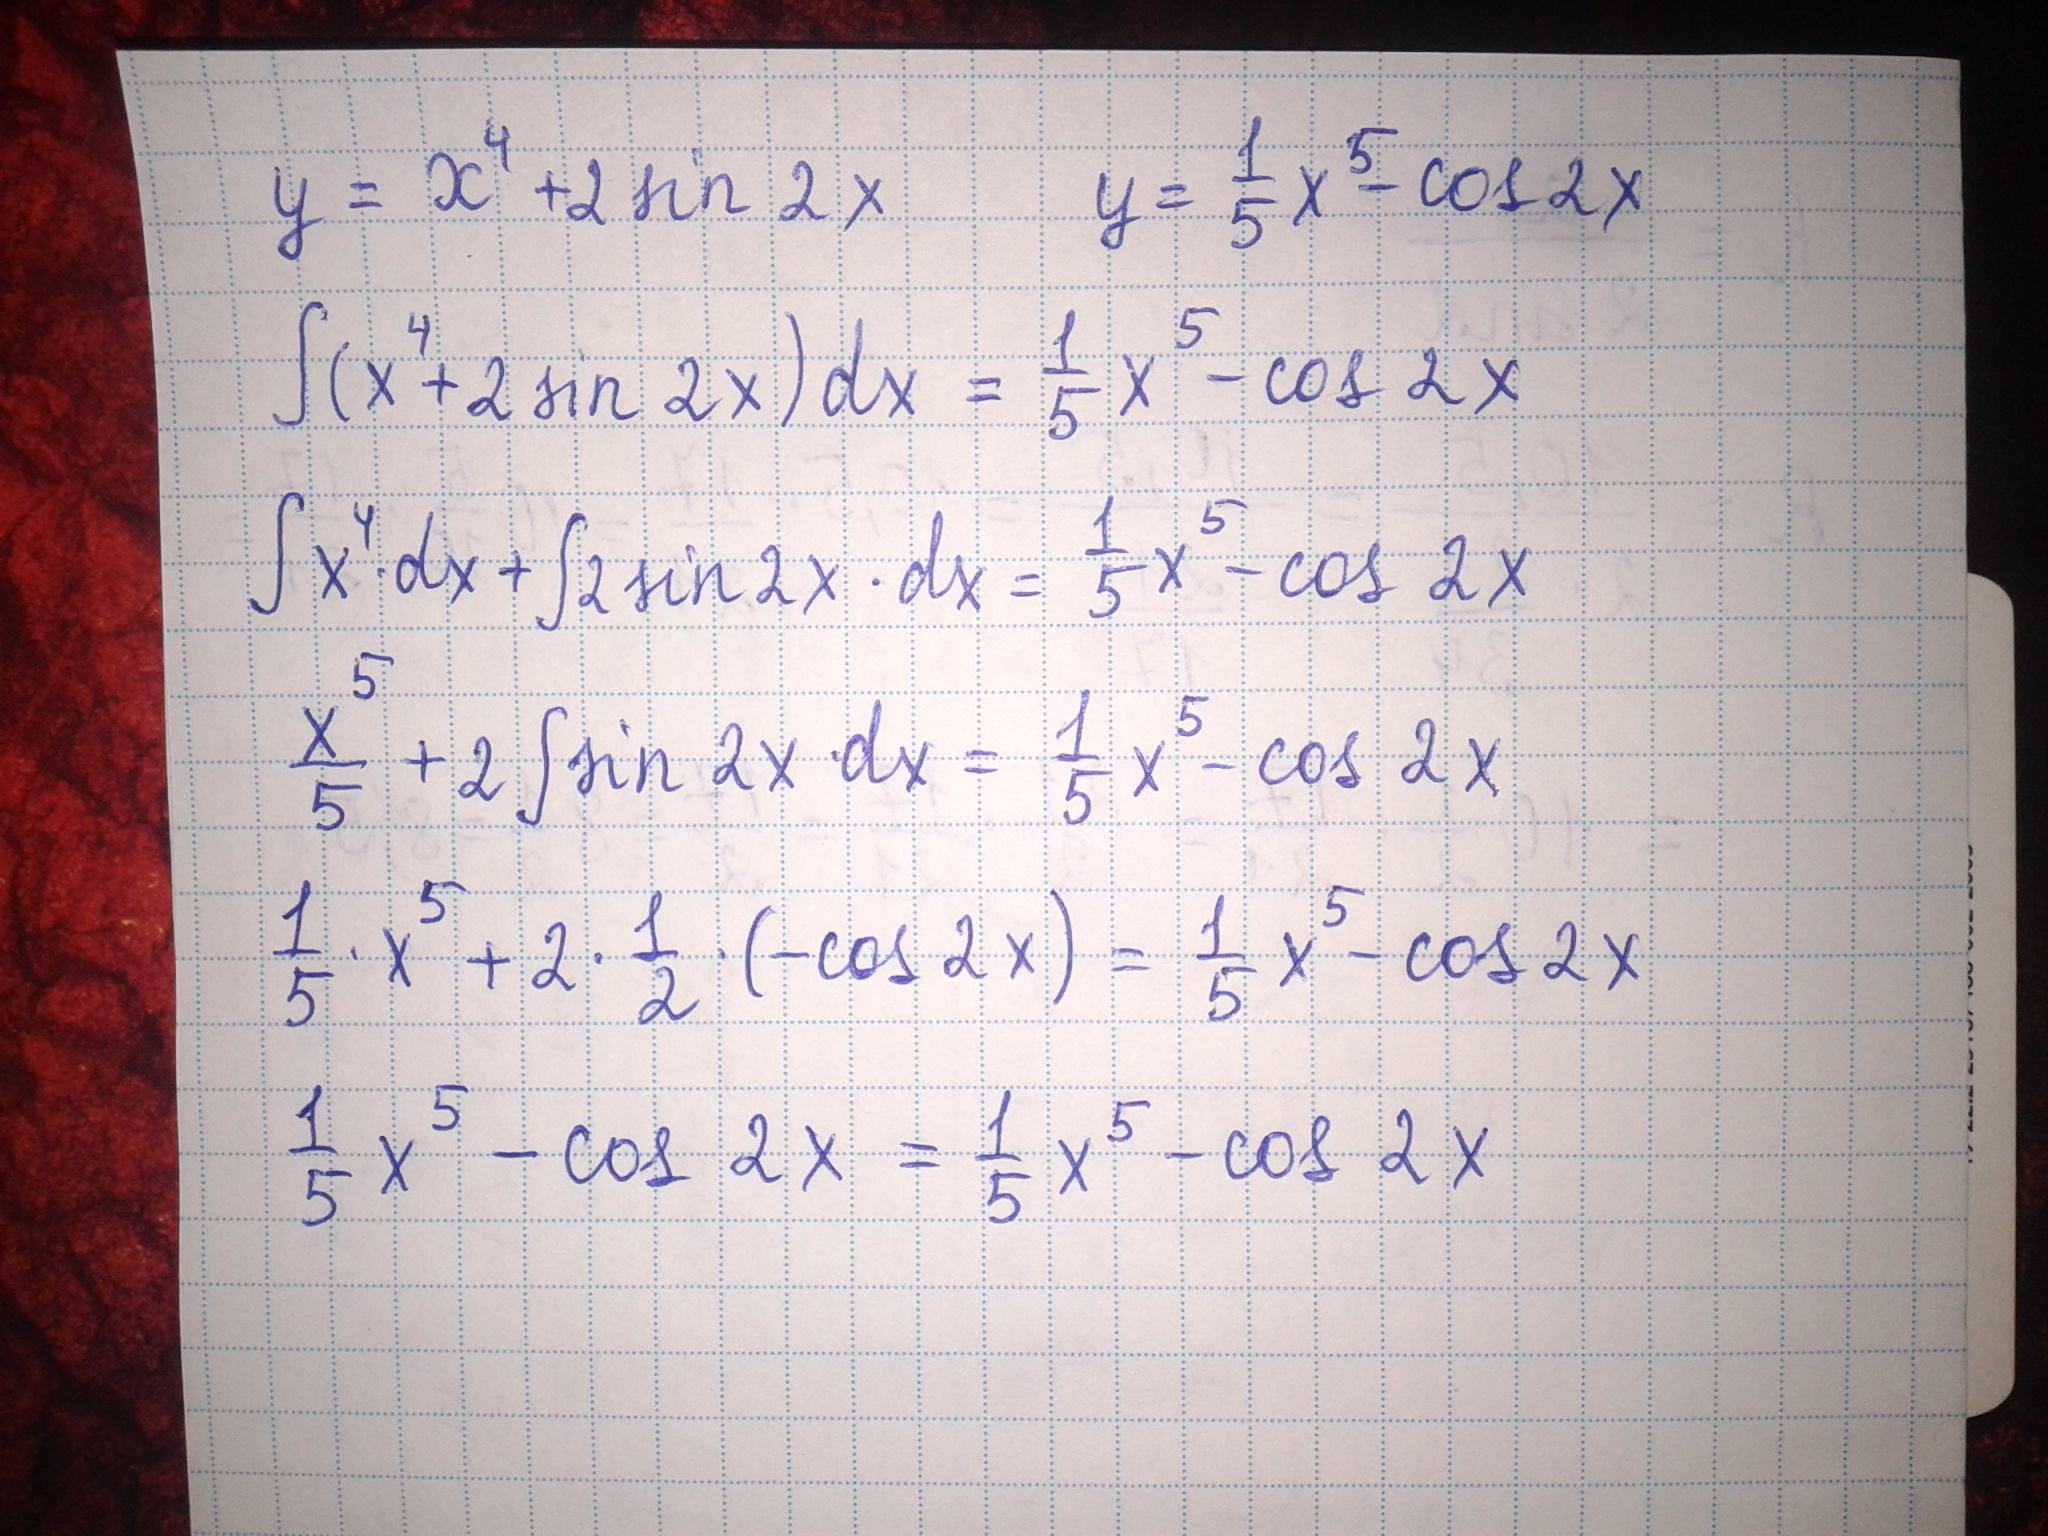 y = x⁴ + 2 sin 2x    y = 1/5 x⁵ - cos 2x
∫(x⁴ + 2 sin 2x) dx = 1/5 x⁵ - cos 2x
∫x⁴ · dx + ∫2 sin 2x · dx = 1/5 x⁵ - cos 2x
x⁵/5 + 2 ∫sin 2x · dx = 1/5 x⁵ - cos 2x
1/5 · x⁵ + 2 · 1/2 · (-cos 2x) = 1/5 x⁵ - cos 2x
1/5 x⁵ - cos 2x = 1/5 x⁵ - cos 2x